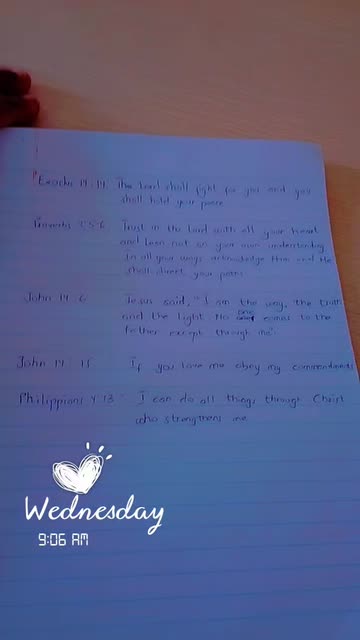 Exodus 14:14 The Lord shall fight for you and you
shall hold your peace
Proverbs 3:5-6 Trust in the Lord with all your heart
and lean not on your own understanding
In all your ways acknowledge Him and He
shall direct your paths
John 14:6 Jesus said, "I am the way, the truth
and the light. No one comes to the
father except through me"
John 14:15 If you love me obey my commandments
Philippians 4:13 I can do all things through Christ
who strengthens me
Wednesday
9:06 AM